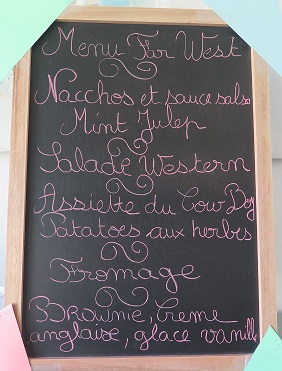 Menu Far West
Nacchos et sauce salsa
Mint Julep
Salade Western
Assiette du Cow Boy
Patatoes aux herbes
Fromage
Brownie, Creme
anglaise, glace vanille